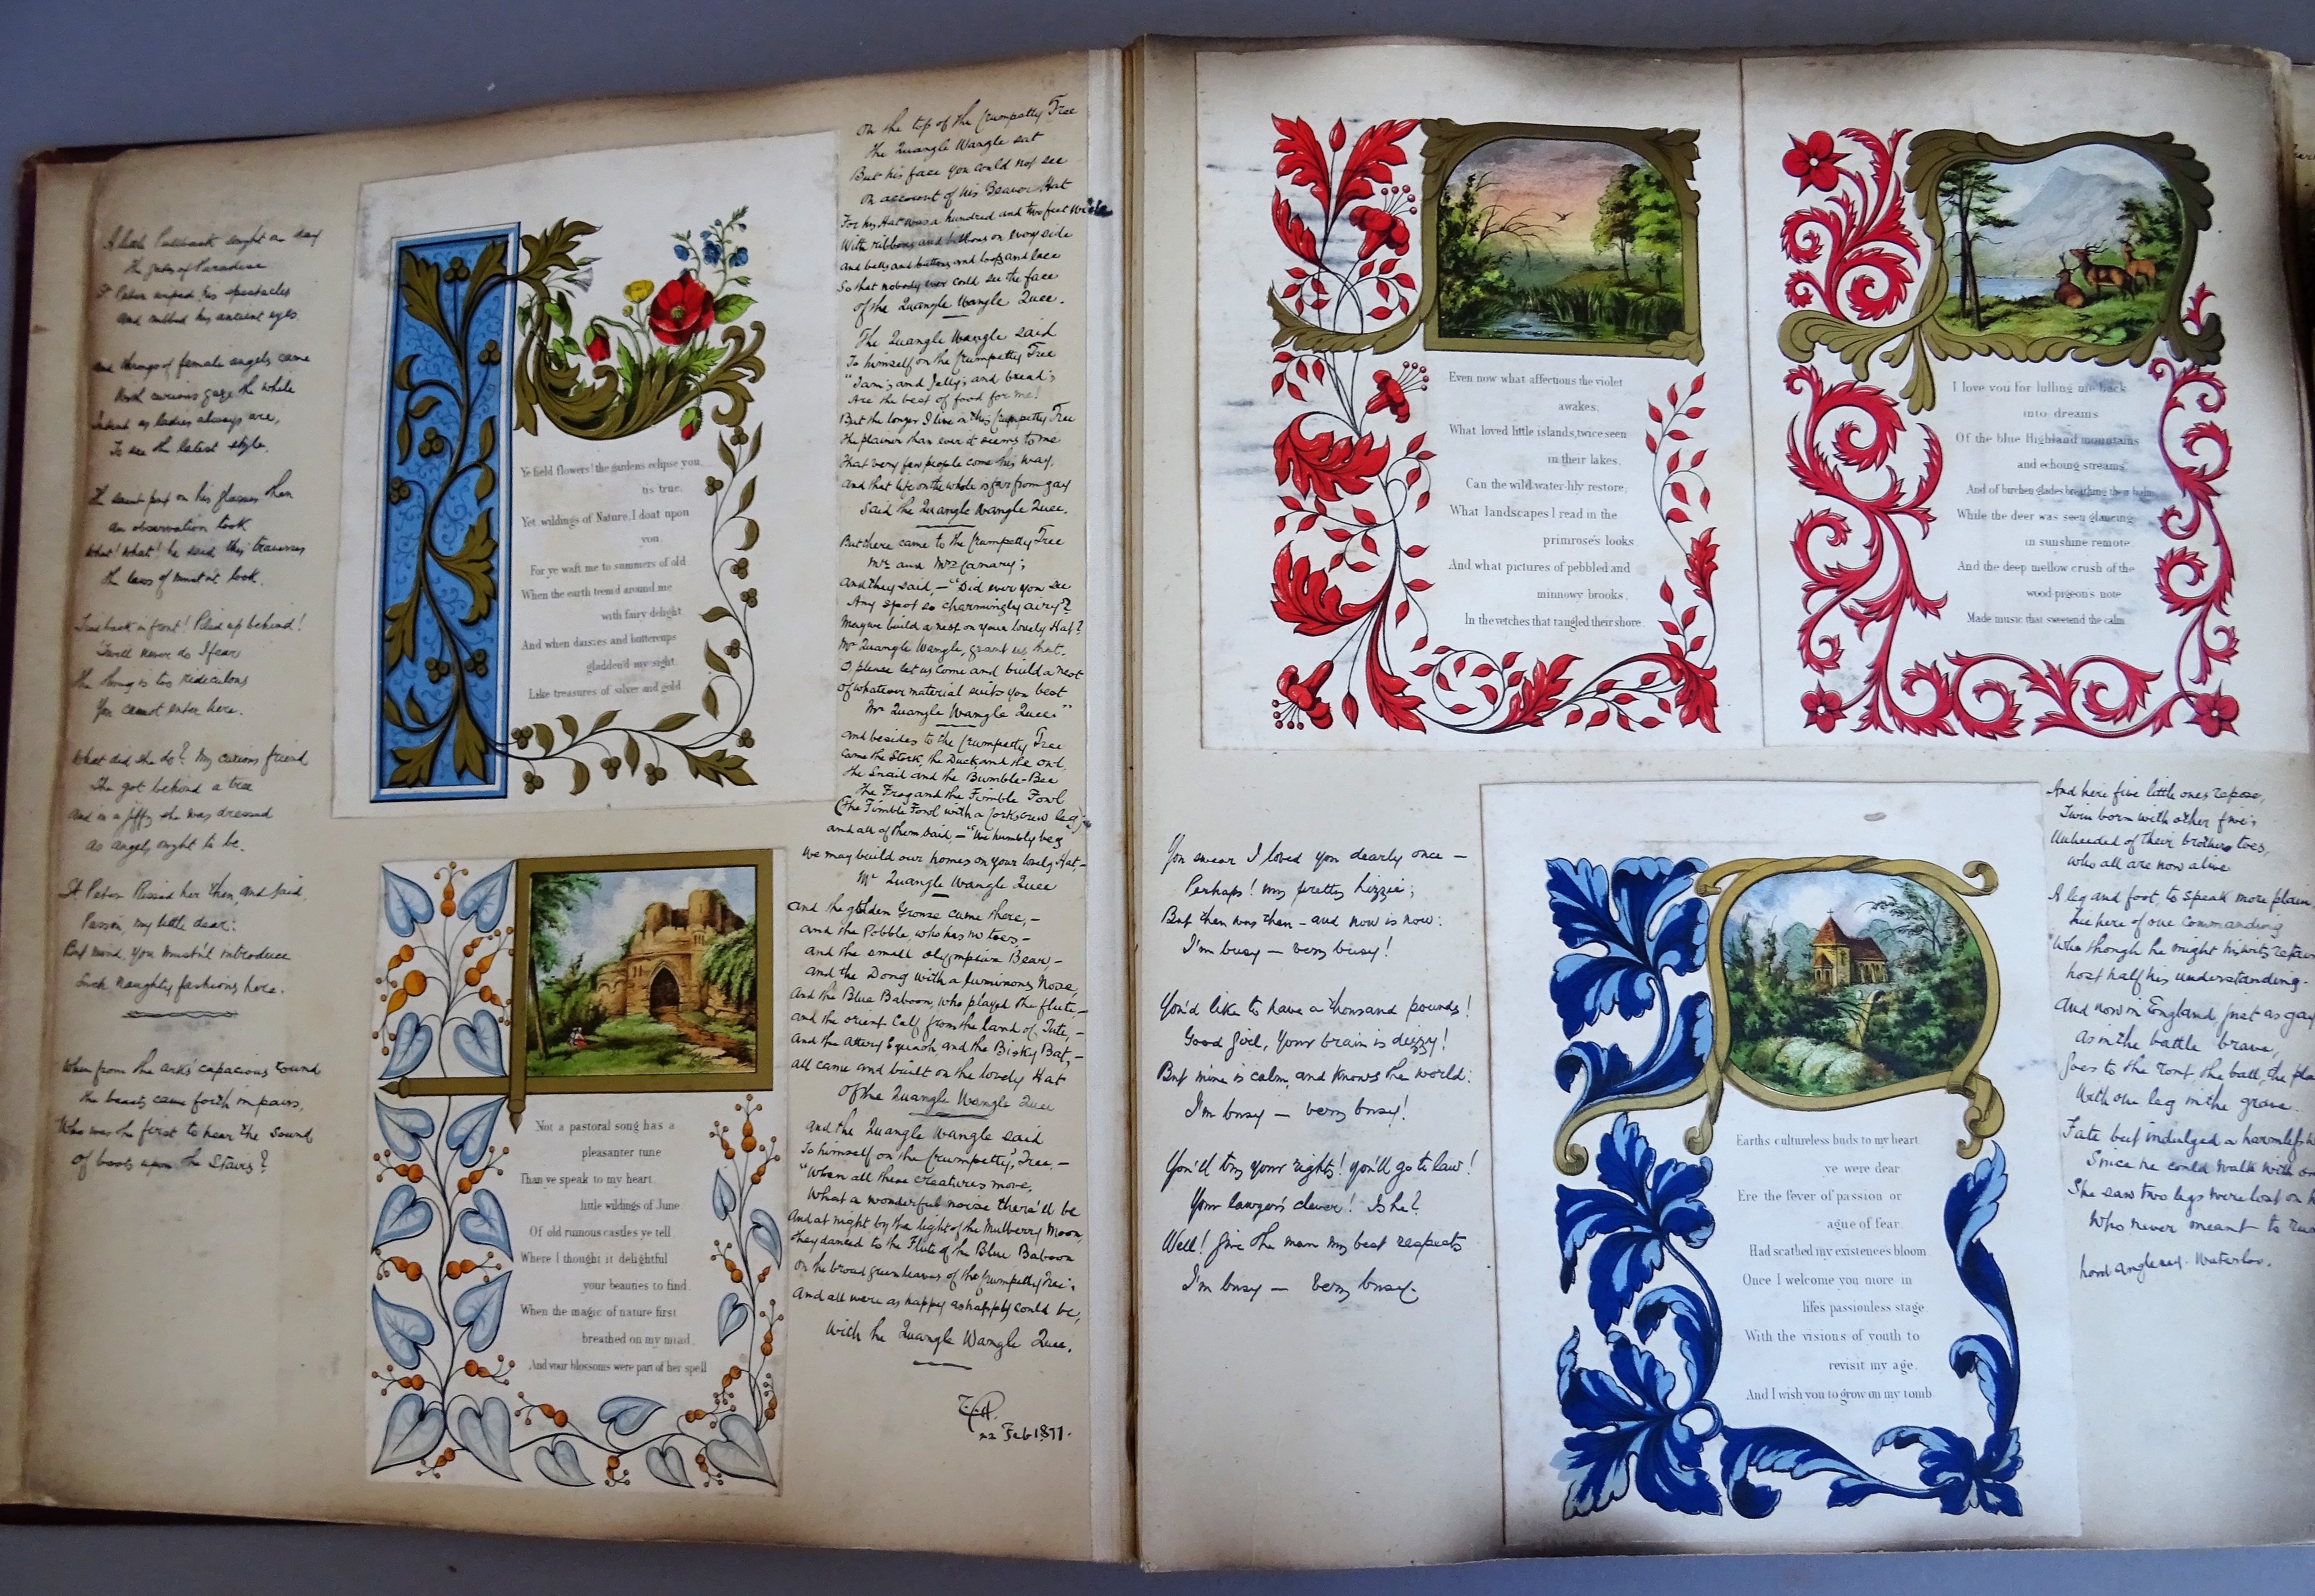 A little Pullback sought one day
The gates of Paradise
St Peter wiped his spectacles
And rubbed his ancient eyes
And throngs of female angels came
With curious gaze the while
Intent as ladies always are,
To see the latest style.
The saint put on his glasses then
An observation took
What! What! he said this
the laws of look.
Tied back in front! Piled up behind!
'Twill never do I fear
The thing is too ridiculous
You cannot enter here.
What did she do? My curious friend
She got behind a tree
And in a jiffy she was dressed
As angels ought to be.
St Peter kissed her then, and said,
Pass in, my little dear:
But mind, you mustn't introduce
Such naughty fashions here.
When from the ark's capacious round
The beasts came forth in pairs,
Who was the first to hear the sound
Of boots upon the Stairs?
Ye field flowers! the gardens eclipse you,
tis true,
Yet, wildings of Nature, I doat upon
you,
For ye waft me to summers of old
When the earth teem'd around me
with fairy delight
And when daisies and buttercups
gladden'd my sight
Like treasures of silver and gold
Not a pastoral song has a
pleasanter tune
Than ye speak to my heart,
little wildings of June
Of old ruinous castles ye tell
Where I thought it delightful
your beauties to find,
When the magic of nature first
breathed on my mind,
And your blossoms were part of her spell
On the top of the Crumpetty Tree
The Quangle Wangle sat
But his face you could not see
On account of his Beaver Hat
For his Hat was a hundred and two feet wide
With ribbons and bibbons on every side
And bells and buttons and loops and lace
So that nobody ever could see the face
Of the Quangle Wangle Quee.
The Quangle Wangle said
To himself on the Crumpetty Tree
"Jam; and Jelly; and bread;
Are the best of food for me!
But the longer I live in this Crumpetty Tree
The plainer than ever it seems to me
That very few people come this way,
And that life on the whole is far from gay
Said the Quangle Wangle Quee.
But there came to the Crumpetty Tree
Mr and Mrs Canary;
And they said,– "Did ever you see
Any spot so charmingly airy?
May we build a nest on your lovely Hat?
Mr Quangle Wangle, grant us that.
O, please let us come and build a nest
Of whatever material suits you best
Mr Quangle Wangle Quee"
And besides to the Crumpetty Tree
Came the Stork, the Duck, and the owl,
The Snail and the Bumble-Bee
The Frog and the Fimble Fowl
(The Fimble Fowl with a Corkscrew leg)
And all of them said,– "We humbly beg
We may build our homes on your lovely Hat,–
Mr Quangle Wangle Quee
And the golden Grouse came there,–
And the Pobble, who has no toes,–
And the small Olympian Bear,–
And the Dong with a luminous Nose,
And the Blue Baboon, who played the flute,–
And the Orient Calf from the land of Tute,–
And the Attery Squash, and the Bisky Bat,–
All came and built on the lovely Hat
Of the Quangle Wangle Quee
And the Quangle Wangle said
To himself on the Crumpetty Tree,–
"When all these creatures move,
What a wonderful noise there'll be
And at night by the light of the Mulberry Moon,
They danced to the Flute of the Blue Baboon
On the broad green leaves of the Crumpetty Tree;
And all were as happy as happy could be,
With the Quangle Wangle Quee.
22 Feb 1877.
Even now what affections the violet
awakes,
What loved little islands, twice seen
in their lakes,
Can the wild water-lily restore,
What landscapes I read in the
primrose's looks
And what pictures of pebbled and
minnowy brooks,
In the vetches that tangled their shore
I love you for lulling me back
into dreams
Of the blue Highland mountains
and echoing streams
And of birchen glades breathing their balm
While the deer was seen glancing
in sunshine remote
And the deep mellow crush of the
wood-pigeon's note
Made music that sweetend the calm
You swear I loved you dearly once –
Perhaps! my pretty Lizzie;
But then was then – and now is now:
I'm busy – very busy!
You'd like to have a thousand pounds!
Good girl, your brain is dizzy!
But mine is calm, and knows the world:
I'm busy – very busy!
You'll try your rights! you'll go to law!
Your lawyer's clever! Is he?
Well! give the man my best respects
I'm busy – very busy.
Earths cultureless buds to my heart
ye were dear
Ere the fever of passion or
ague of fear,
Had scathed my existences bloom
Once I welcome you more in
life's passionless stage,
With the visions of youth to
revisit my age,
And I wish you to grow on my tomb
And here five little ones repose,
Twin born with other five;
Unheeded of their brothers toes,
Who all are now alive
A leg and foot, to speak more plain
Lie here of one commanding
Who though he might his wits retain
Lost half his understanding.
And now in England just as gay
As in the battle brave,
Goes to the rout, the ball, the
With one leg in the grave.
Fate but indulged a harmless
Since he could walk with
She saw two legs were lost on
Who never meant to
Lord Anglesey. Waterloo.